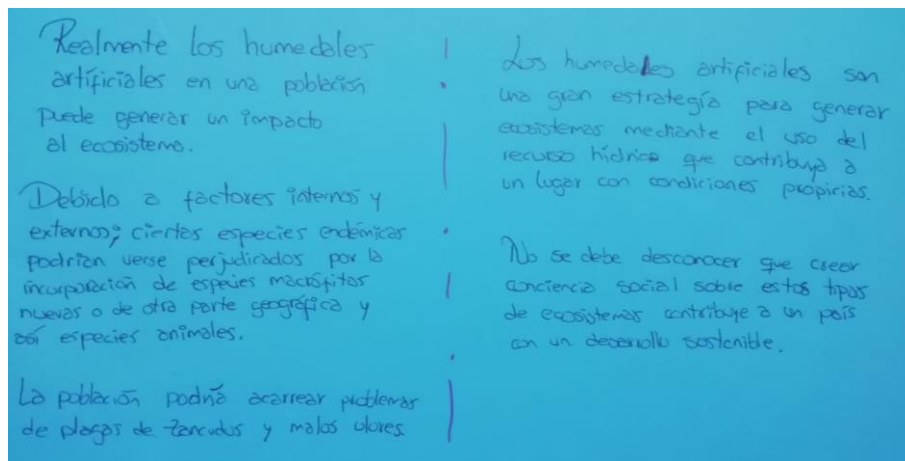 Realmente los humedales
artificiales en una población
puede generar un impacto
al ecosistema.
Debido a factores internos y
externos; ciertas especies endémicas
podrían verse perjudicados por la
incorporación de especies macrófitas
nuevas o de otra parte geográfica y
así especies animales.
La población podría acarrear problemas
de plagas de zancudos y malos olores.
Los humedales artificiales son
una gran estrategía para generar
ecosistemas mediante el uso del
recurso hídrico que contribuya a
un lugar con condiciones propicias.
No se debe desconocer que creer
conciencia social sobre estos tipos
de ecosistemas contribuye a un país
con un desarrollo sostenible.